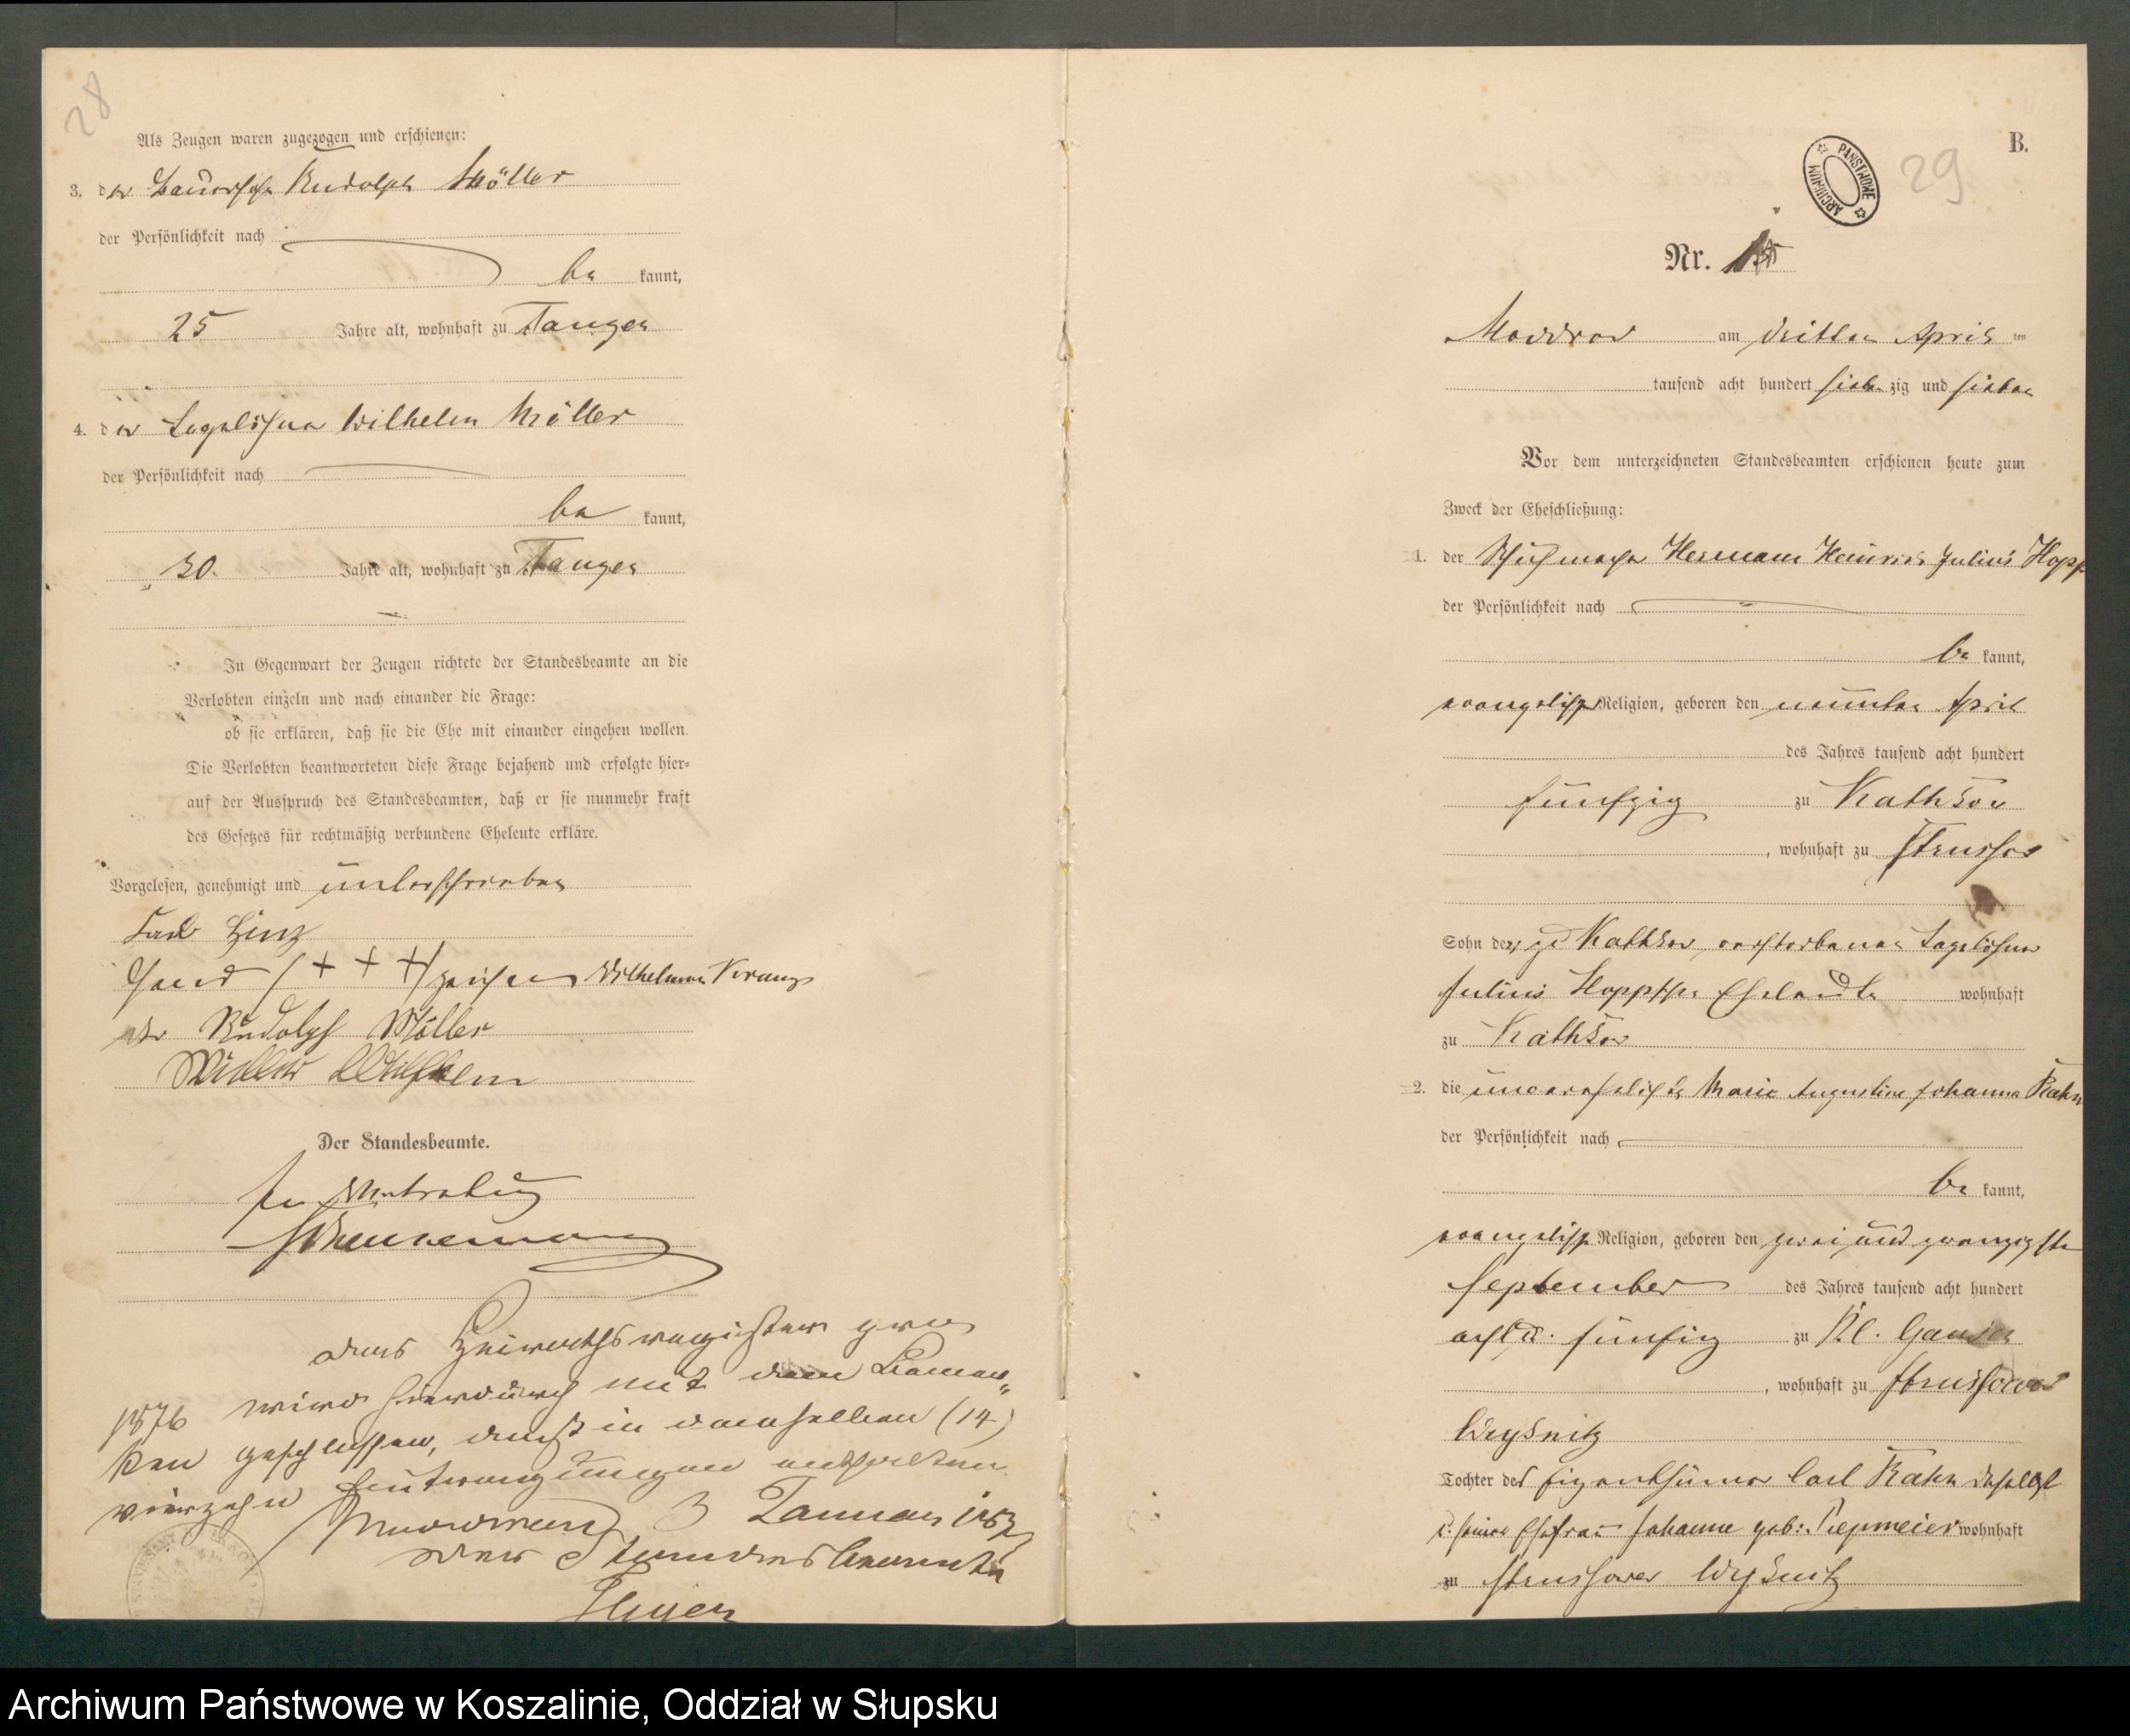 28
Als Zeugen waren zugezogen und erschienen:
3. der Bauersohn Rudolph Möller
der Persönlichkeit nach
be kannt,
25 Jahre alt, wohnhaft zu Tangen
4. der Tagelöhner Wilhelm Möller
der Persönlichkeit nach
be kannt,
30. Jahre alt, wohnhaft zu Tangen
In Gegenwart der Zeugen richtete der Standesbeamte an die
Verlobten einzeln und nach einander die Frage:
ob sie erklären, daß sie die Ehe mit einander eingehen wollen.
Die Verlobten beantworteten diese Frage bejahend und erfolgte hier-
auf der Ausspruch des Standesbeamten, daß er sie nunmehr kraft
des Gesetzes für rechtmäßig verbundene Eheleute erkläre.
Vorgelesen, genehmigt und unterschrieben
Hinz
Hand (+ + +) zeichen Wilhelmine
Rudolph Möller
Wilhelm
Der Standesbeamte.
In Vertretung
Das Heirathsregister pro
1876 wird hierdurch mit dem Bemer-
ken geschlossen, daß in demselben (14)
vierzehn Eintragungen enthalten
3 Januar
Der Standesbeamte
B.
ARCHIWUM PAŃSTWOWE
29
Nr. 1
Moddrow am dritten April ten
tausend acht hundert sieben zig und sieben
Vor dem unterzeichneten Standesbeamten erschienen heute zum
Zweck der Eheschließung:
1. der Schuhmacher Hermann Heinrich Julius Hopp
der Persönlichkeit nach
be kannt,
evangelischer Religion, geboren den neunten April
des Jahres tausend acht hundert
fünfzig zu Kathkow
, wohnhaft zu Strussow
Sohn der zu Kathkow verstorbenen Tagelöhner
Julius Hoppschen Eheleute wohnhaft
zu Kathkow
2. die unverehelichte Marie Augustine Johanna Rahn
der Persönlichkeit nach
be kannt,
evangelischer Religion, geboren den zwei und zwanzigsten
September des Jahres tausend acht hundert
acht u. fünfzig zu Kl. Gansen
, wohnhaft zu Strussower
Wyssnitz
Tochter des Eigenthümer Carl Rahn daselbst
u. seiner Ehefrau Johanne geb: Piepmeier wohnhaft
zu Strussower Wyssnitz
Archiwum Państwowe w Koszalinie, Oddział w Słupsku